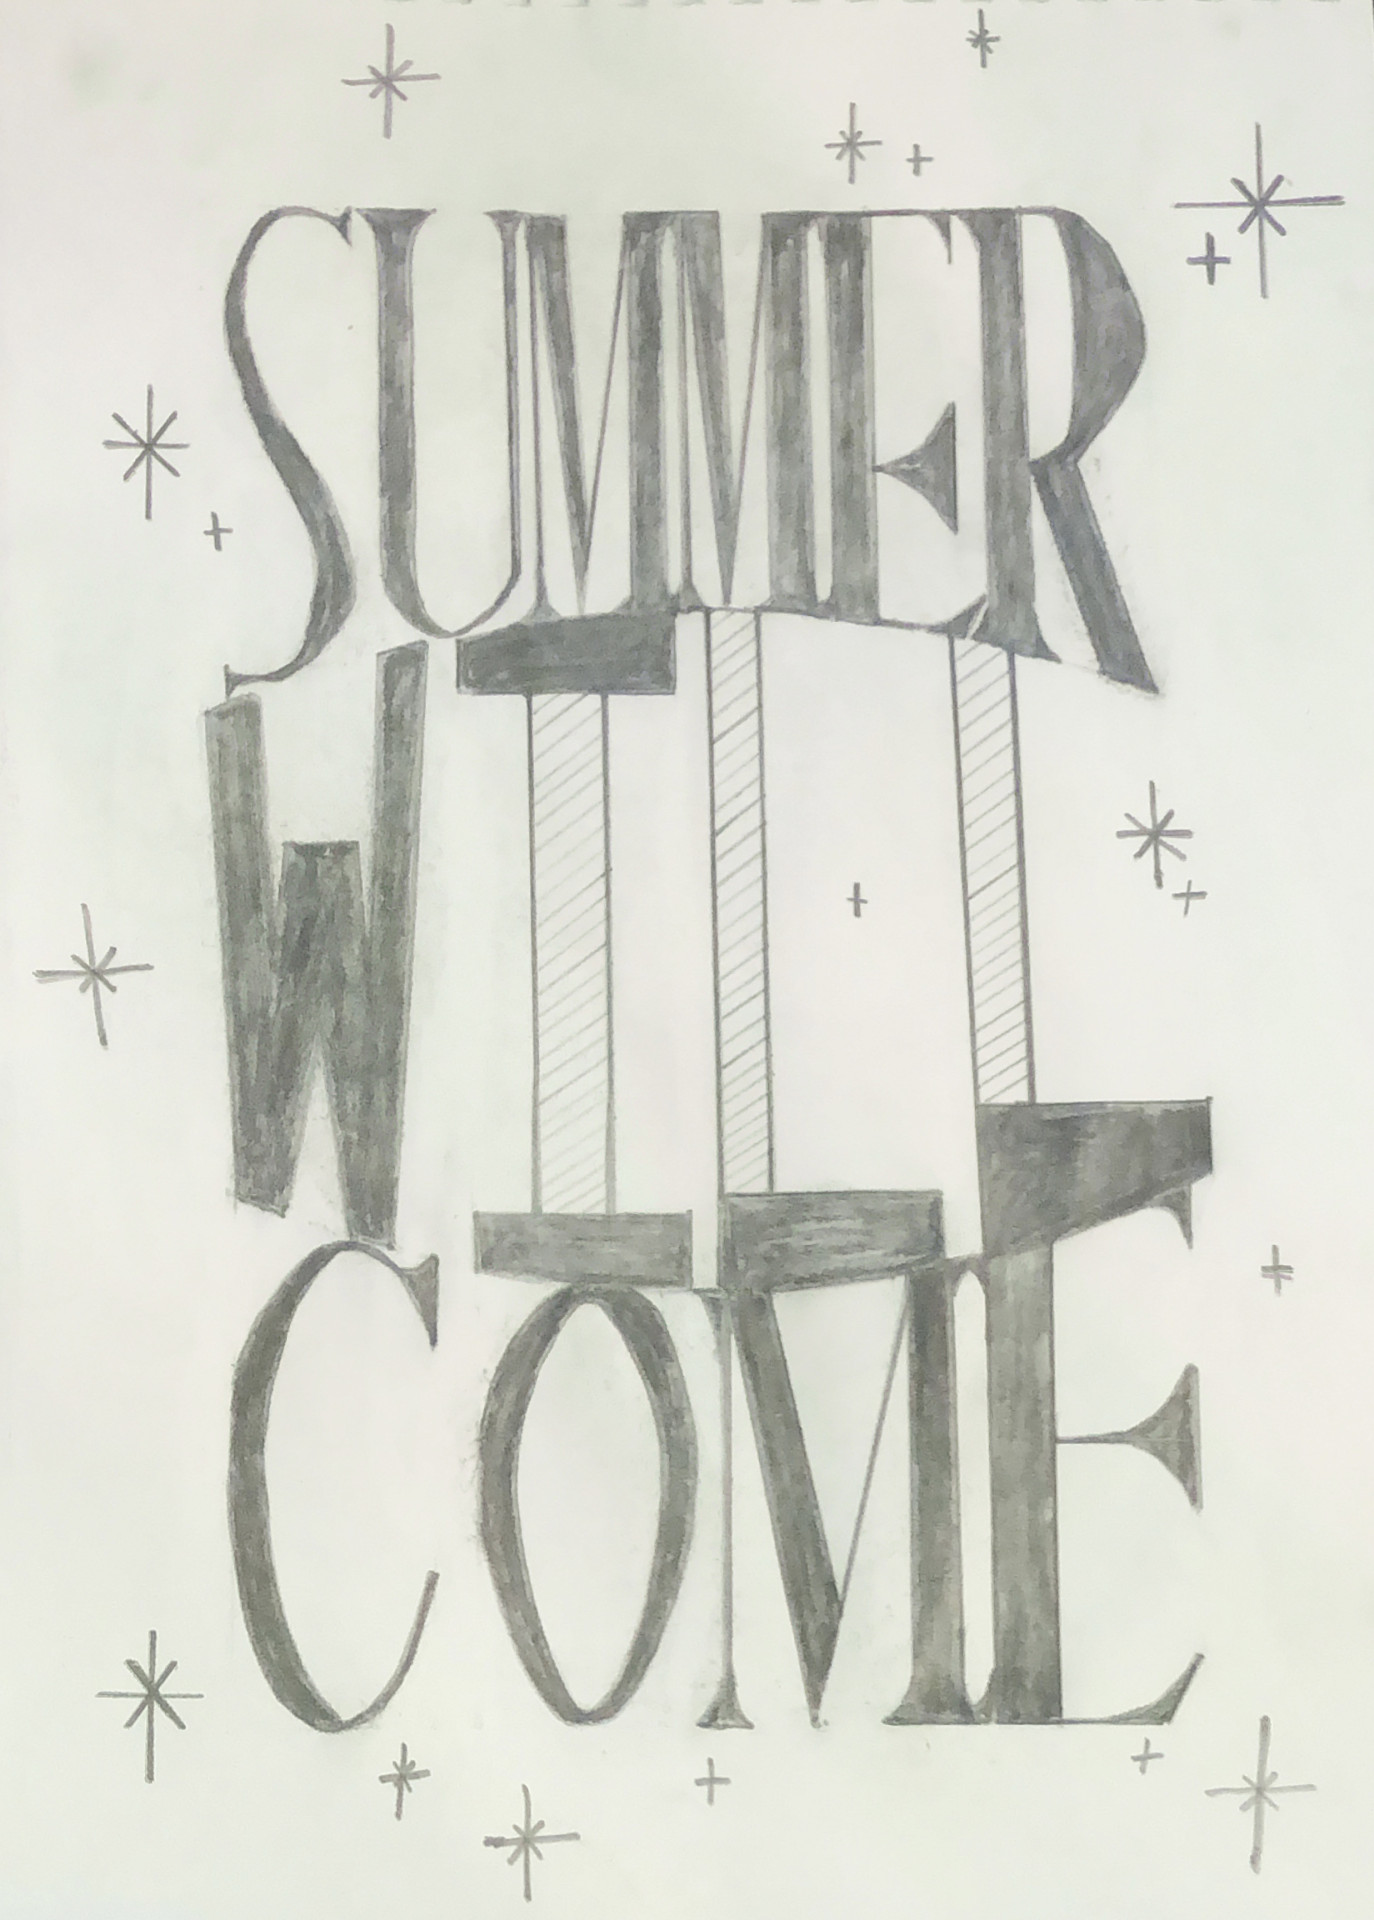 SUMMER
WILL
COME